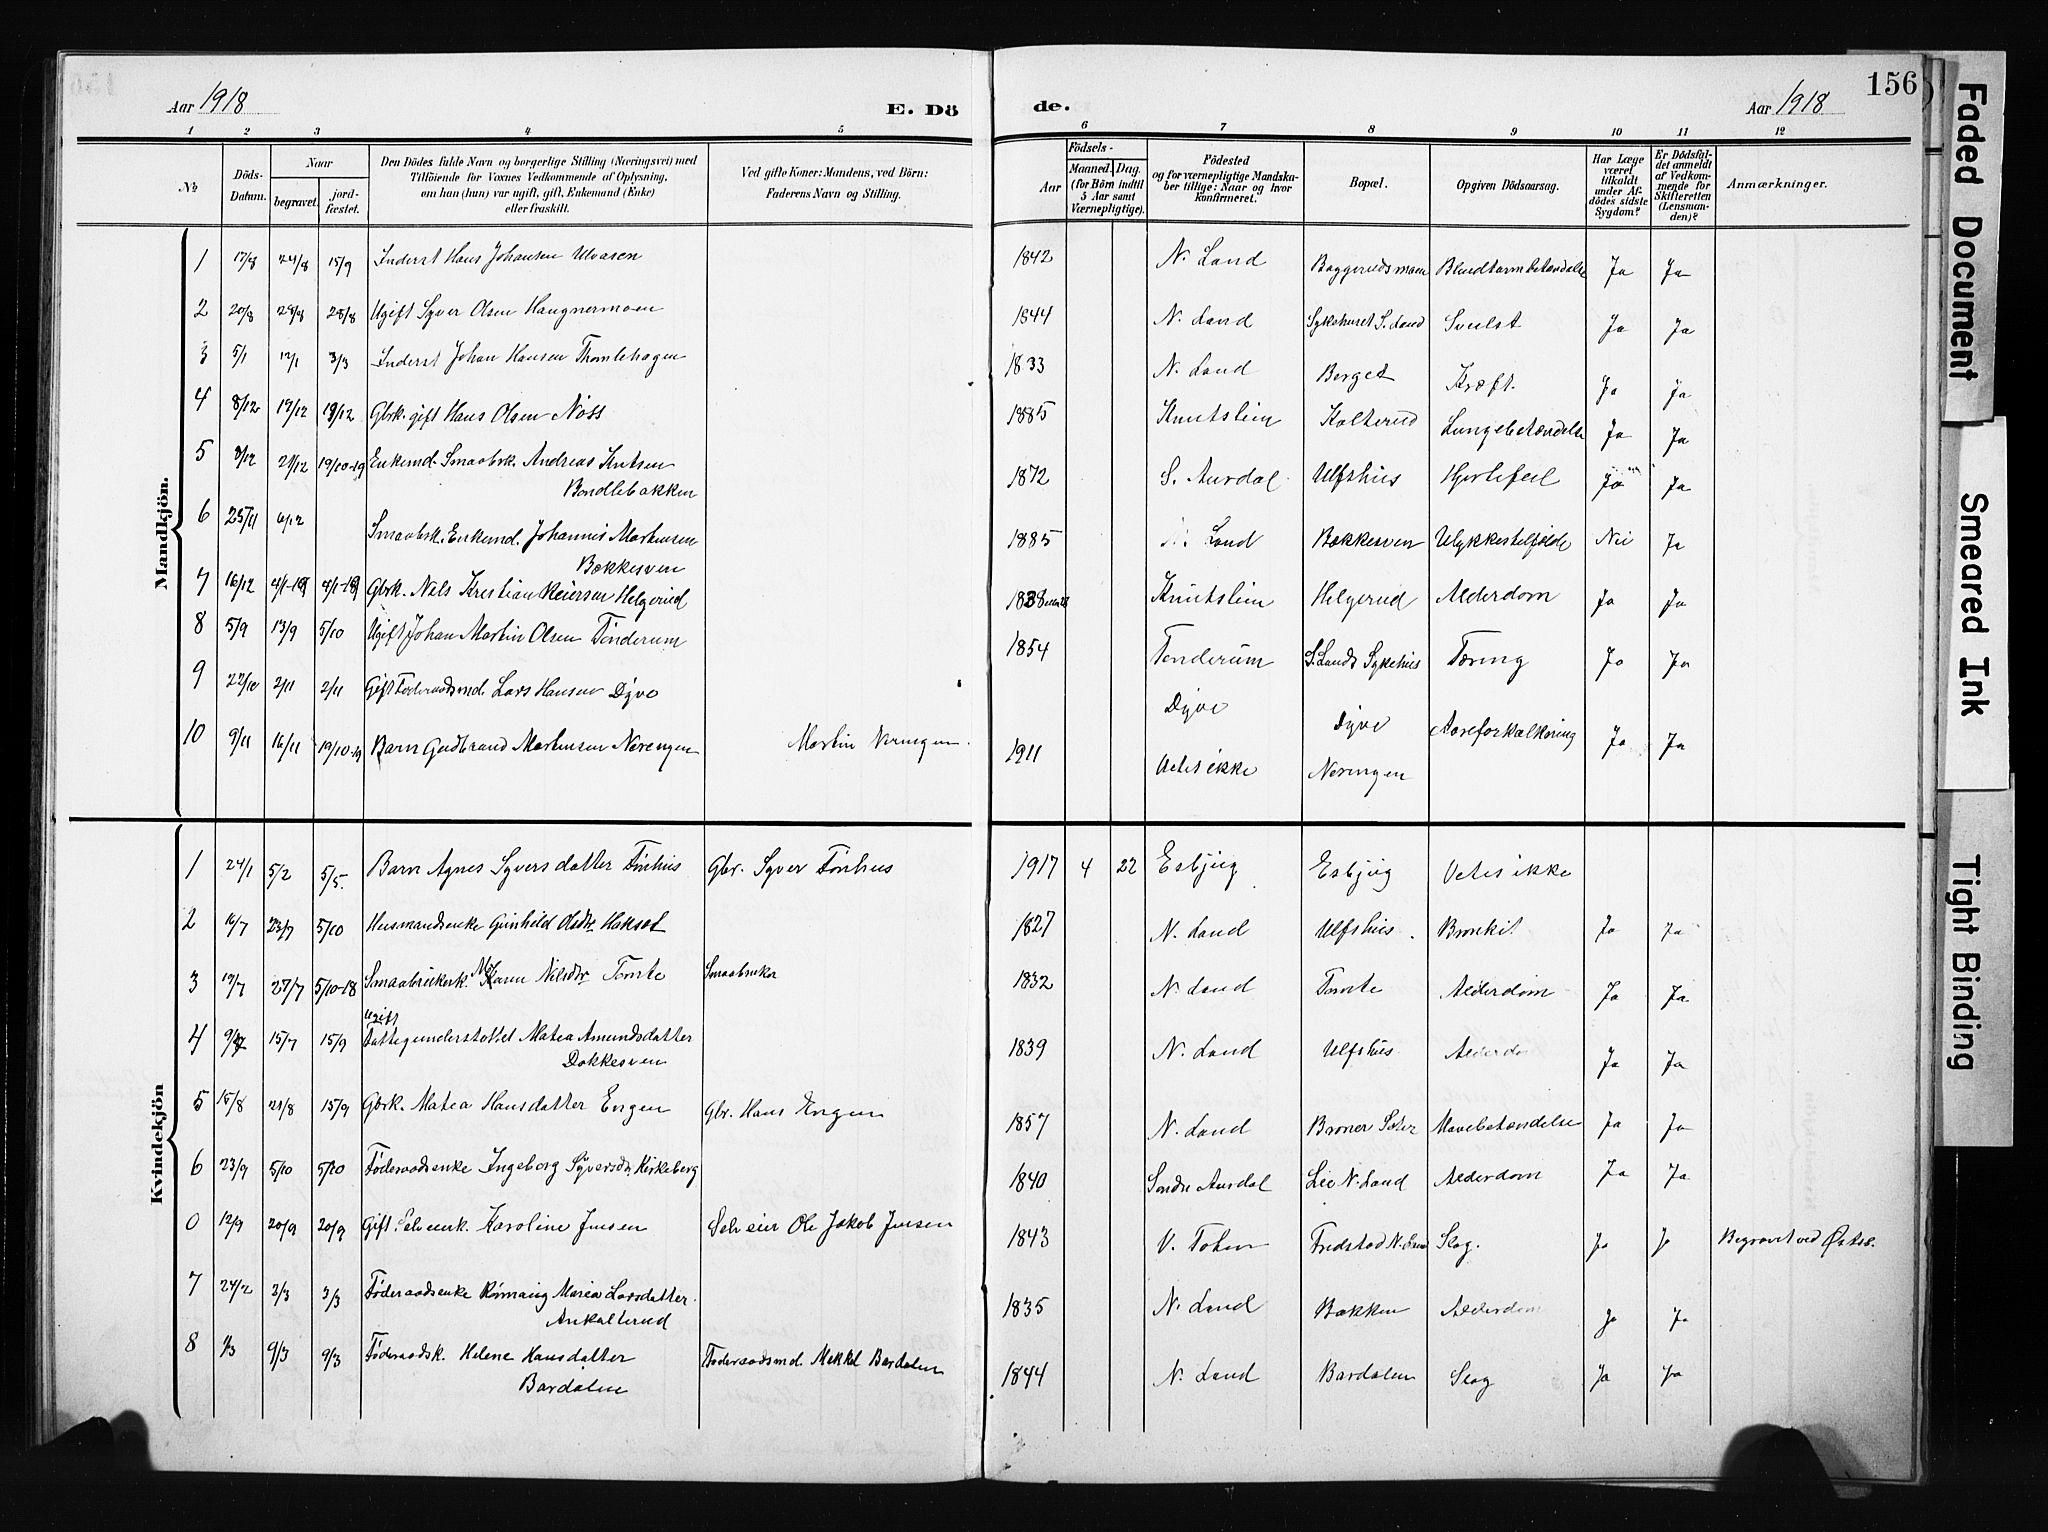 156
Aar 1918
E. Dö
de.
Aar 1918
1 2 3 4 5 6 7 8 9 10 11 12
No
Döds-Datum.
Naar
begravet.
jord-fæstet.
Den Dödes fulde Navn og borgerlige Stilling (Næringsvei) med
Tilföiende for Voxnes Vedkommende af Oplysning,
om han (hun) var ugift, gift, Enkemand (Enke)
eller fraskilt.
Ved gifte Koner: Mandens, ved Börn:
Faderens Navn og Stilling.
Födsels-
Aar
Maaned.
Dag.
(for Börn indtil
5 Aar samt
Værnepligtige).
Födested
og for værnepligtige Mandska-
ber tillige: Naar og hvor
konfirmeret.
Bopæl.
Opgiven Dödsaarsag.
Har Læge
været
tilkaldt
under Af-
dödes sidste
Sygdom?
Er Dödsfal-
det anmeldt
af Vedkom-
mende for
Skifteretten
(Lensman-
den)?
Anmærkninger.
Mandkjön.
1 17/8 24/8 15/9 Inderst Hans Johansen Ulvasen 1842 N. Land Baggerudsmoen Blindtarmbetændelse Ja Ja
2 20/8 28/8 28/8 Ugift Syver Olsen Haugnermoen 1844 N. Land Sykehuset S. Land Svulst Ja Ja
3 5/1 12/1 3/3 Inderst Johan Hansen Thomlehagen 1833 N. Land Berget Kræft. Ja Ja
4 8/12 19/12 19/12 Gbrk. gift Hans Olsen Nöss 1885 Knutslein Kolterud Lungebetændelse Ja Ja
5 8/12 21/12 19/10-19 Enkemd. Smaabrk. Andreas Knutsen
Bondlebakken 1872 S. Aurdal Ulfshus Hjertefeil Ja Ja
6 25/11 6/12 Smaabrk. Enkemd. Johannes Martinsen
Bækkesven 1885 N. Land Bækkesven Ulykkestilfælde Nei Ja
7 16/12 4/1-19 4/1-19 Gbrk. Nils Kristian Reiersen Helgerud 1838 Knutslein Helgerud Alderdom Ja Ja
8 5/9 13/9 5/10 Ugift Johan Martin Olsen Tönderum 1854 Tonderum S. Lands Sykehus Tæring Ja Ja
9 22/10 2/11 2/11 Gift Föderaadsmd. Lars Hansen Dyve Dyve Dyve Aareforkalkning Ja Ja
10 9/11 16/11 19/10-19 Barn Gudbrand Martinsen Nerengen Martin Nerengen. 1911 Vetes ikke Neringen
Kvindekjön
1 24/1 5/2 5/5. Barn Agnes Syversdatter Fönhus Gbr. Syver Fönhus 1917 4 22 Esbjug Esbjug Vetes ikke
2 16/7 23/7 5/10 Husmandsenke Gunhild Olsdtr Haksæt 1827 N. Land Ulfshus. Bronkit Ja Ja
3 19/7 27/7 5/10-18 Smaabrukerk. Karen Nilsdtr Tomte Smaabruker 1832 N. Land Tomte Alderdom Ja Ja
4 9/7 15/7 15/9 Ugift
Fattigunderstöttet Matea Amundsdatter
Dokkesven 1839 N. Land Ulfshus. Alderdom Ja Ja
5 15/8 21/8 15/9 Gbrk. Matea Hansdatter Engen Gbr. Hans Engen 1857 N. Land Broner Sæter Mavebetændelse Ja Ja
6 23/9 5/10 5/10 Föderaadsenke Ingeborg Syversdtr Kirkeberg 1840 Sondre Aurdal Lie N. Land Alderdom Ja Ja
0 12/9 20/9 20/9 Gift. Selveierk. Karoline Jensen Selveier Ole Jakob Jensen 1843 V. Toten Fredstad N. Land Slag. Ja J Begravet ved Østsi.
7 24/2 3/3 3/3 Föderaadsenke Rönnaug Marea Larsdatter
Ankalterud 1835 N. Land Bakken Alderdom Ja Ja
8 1/3 9/3 9/3 Föderaadsk. Helene Hansdatter
Bardalen Föderaadsmd. Mekkel Bardalen 1844 N. Land Bardalen Slag Ja Ja
Faded Document
Smeared Ink
Tight Binding